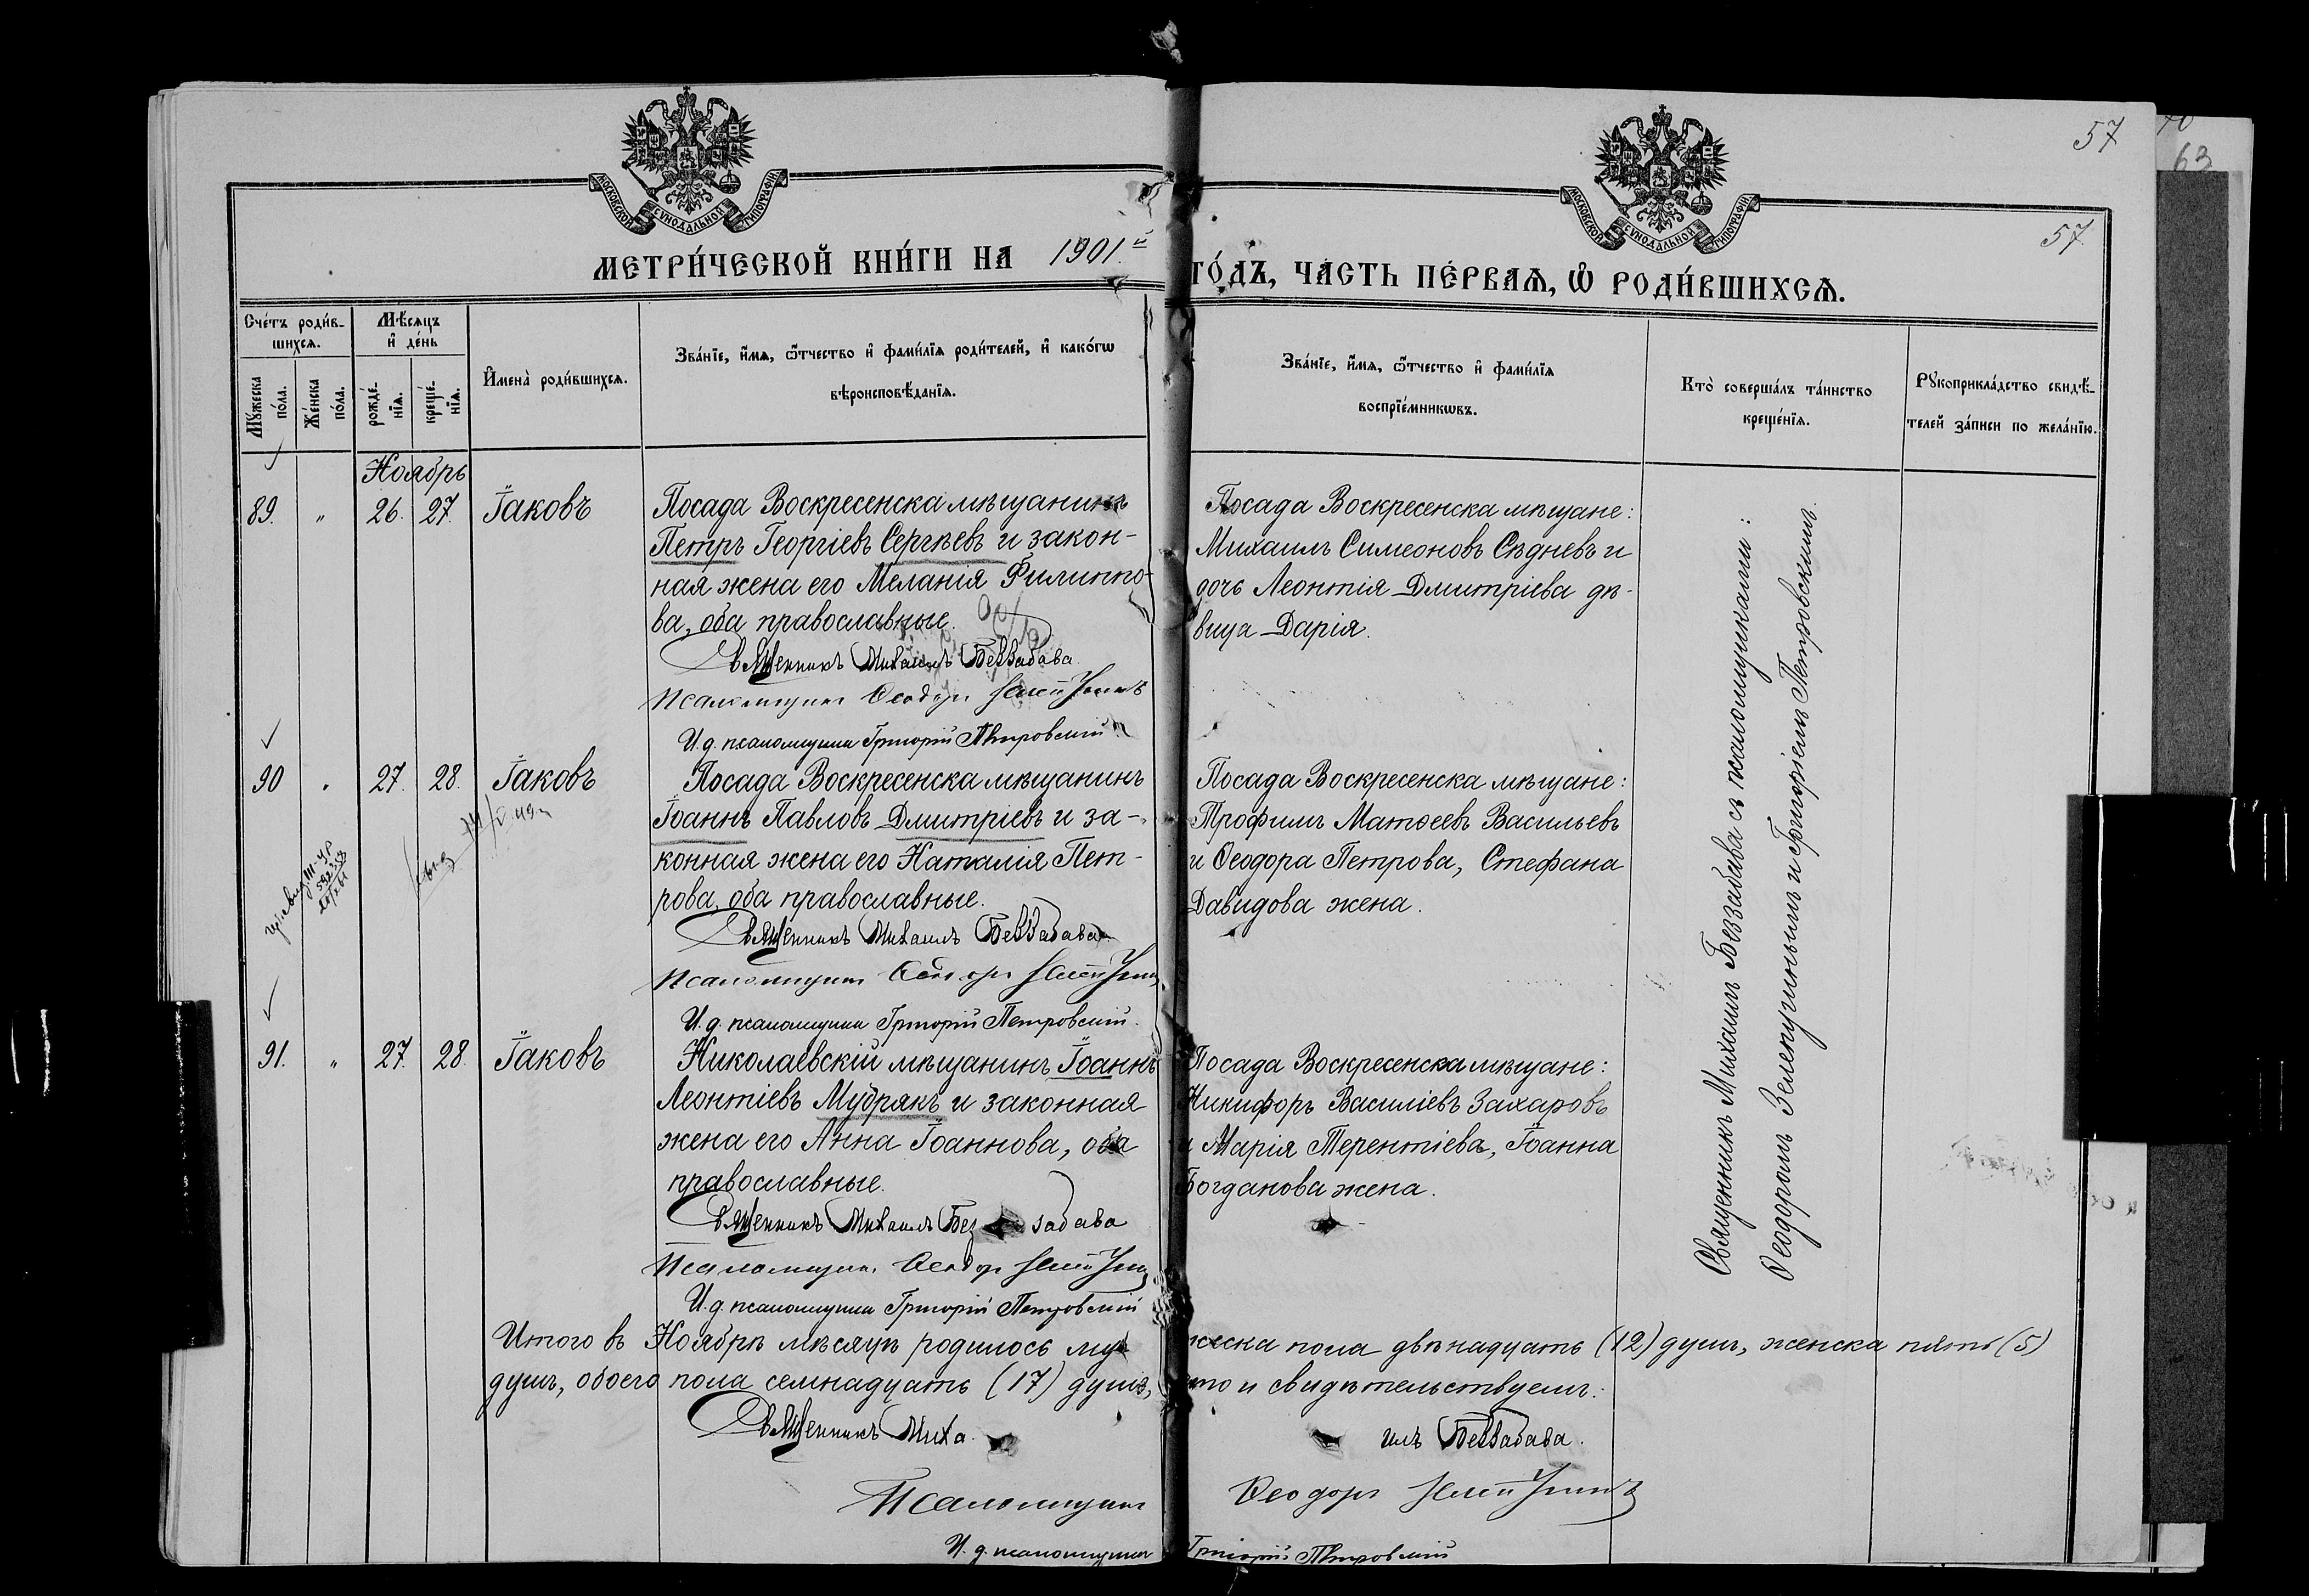 57
63
МОСКОВСКОЙ СѴНОДАЛЬНОЙ ТИПОГРАФІИ
МОСКОВСКОЙ СѴНОДАЛЬНОЙ ТИПОГРАФІИ
57.
МЕТРИ́ЧЕСКОЙ КНИ́ГИ НА 1901.й
ГО́ДЪ, ЧА́СТЬ ПЕ́РВАѦ, Ѽ РОДИ́ВШИХСѦ.
Сче́тъ роди́в-
шихсѧ.
Мꙋ́жеска
по́ла.
Же́нска
по́ла.
Мѣ́сѧцъ
и҆ де́нь
рожде́-
нїѧ.
креще́-
нїѧ.
И҆мена̀ роди́вшихсѧ.
Зва́нїе, и҆́мѧ, ѻ҆́тчество и҆ фами́лїѧ роди́телей, и҆ како́гѡ
вѣроисповѣ́данїѧ.
Зва́нїе, и҆́мѧ, ѻ҆́тчество и҆ фами́лїѧ
воспрїе́мникѡвъ.
Кто̀ соверша́лъ та́инство
креще́нїѧ.
Рꙋкоприкла́дство свидѣ́-
телей за́писи по жела́нїю.
Ноябрь
89. " 26. 27. Іаковъ
Посада Воскресенска мѣщанинъ
Петръ Георгіевъ Сергѣевъ и закон-
ная жена его Меланія Филиппо-
ва, оба православные.
Священникъ Михаилъ Беззабава.
Псаломщикъ Ѳеодоръ
И. д. псаломщика Григорій Петровскій
Посада Воскресенска мѣщане:
Михаилъ Симеоновъ Сѣдневъ и
дочь Леонтія Дмитріева дѣ-
вица Дарія.
90 " 27. 28. Іаковъ
Посада Воскресенска мѣщанинъ
Іоаннъ Павловъ Дмитріевъ и за-
конная жена его Наталія Пет-
рова, оба православные.
Священникъ Михаилъ Беззабава
Псаломщикъ Ѳеодоръ
И. д. псаломщика Григорій Петровскій.
Посада Воскресенска мѣщане:
Трофимъ Матѳеевъ Васильевъ
и Ѳеодора Петрова, Стефана
Давидова жена.
91. " 27. 28. Іаковъ
Николаевскій мѣщанинъ Іоаннъ
Леонтіевъ Мубрякъ и законная
жена его Анна Іоаннова, оба
православные.
Священникъ Михаилъ Беззабава
Псаломщикъ Ѳеодоръ
И. д. псаломщика Григорій Петровскій
Посада Воскресенска мѣщане:
Никифоръ Василіевъ Захаровъ
и Марія Терентіева, Іоанна
Богданова жена.
Священникъ Михаилъ Беззабава съ псаломщиками:
Ѳеодоромъ и Григоріемъ Петровскимъ
Итого въ Ноябрѣ мѣсяцѣ родилось мужеска пола двѣнадцать (12) душъ, женска пять (5)
душъ, обоего пола семнадцать (17) душъ, что и свидѣтельствуемъ:
Священникъ Михаилъ Беззабава.
Псаломщикъ Ѳеодоръ
И. д. псаломщика Григорій Петровскій